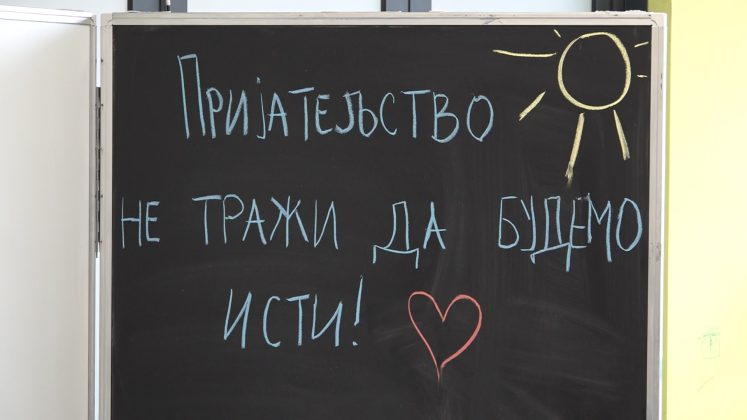 Пријатељство
не тражи да будемо
исти!